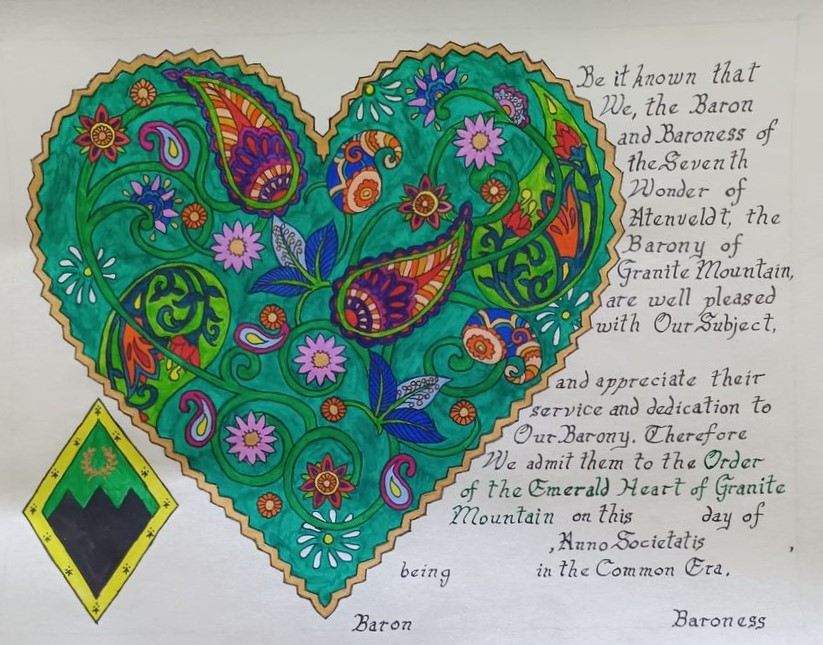 Be it known that
We, the Baron
and Baroness of
the Seventh
Wonder of
Atenveldt, the
Barony of
Granite Mountain,
are well pleased
with Our Subject,
and appreciate their
service and dedication to
Our Barony. Therefore
We admit them to the Order
of the Emerald Heart of Granite
Mountain on this day of
, Anno Societatis ,
being in the Common Era.
Baron Baroness